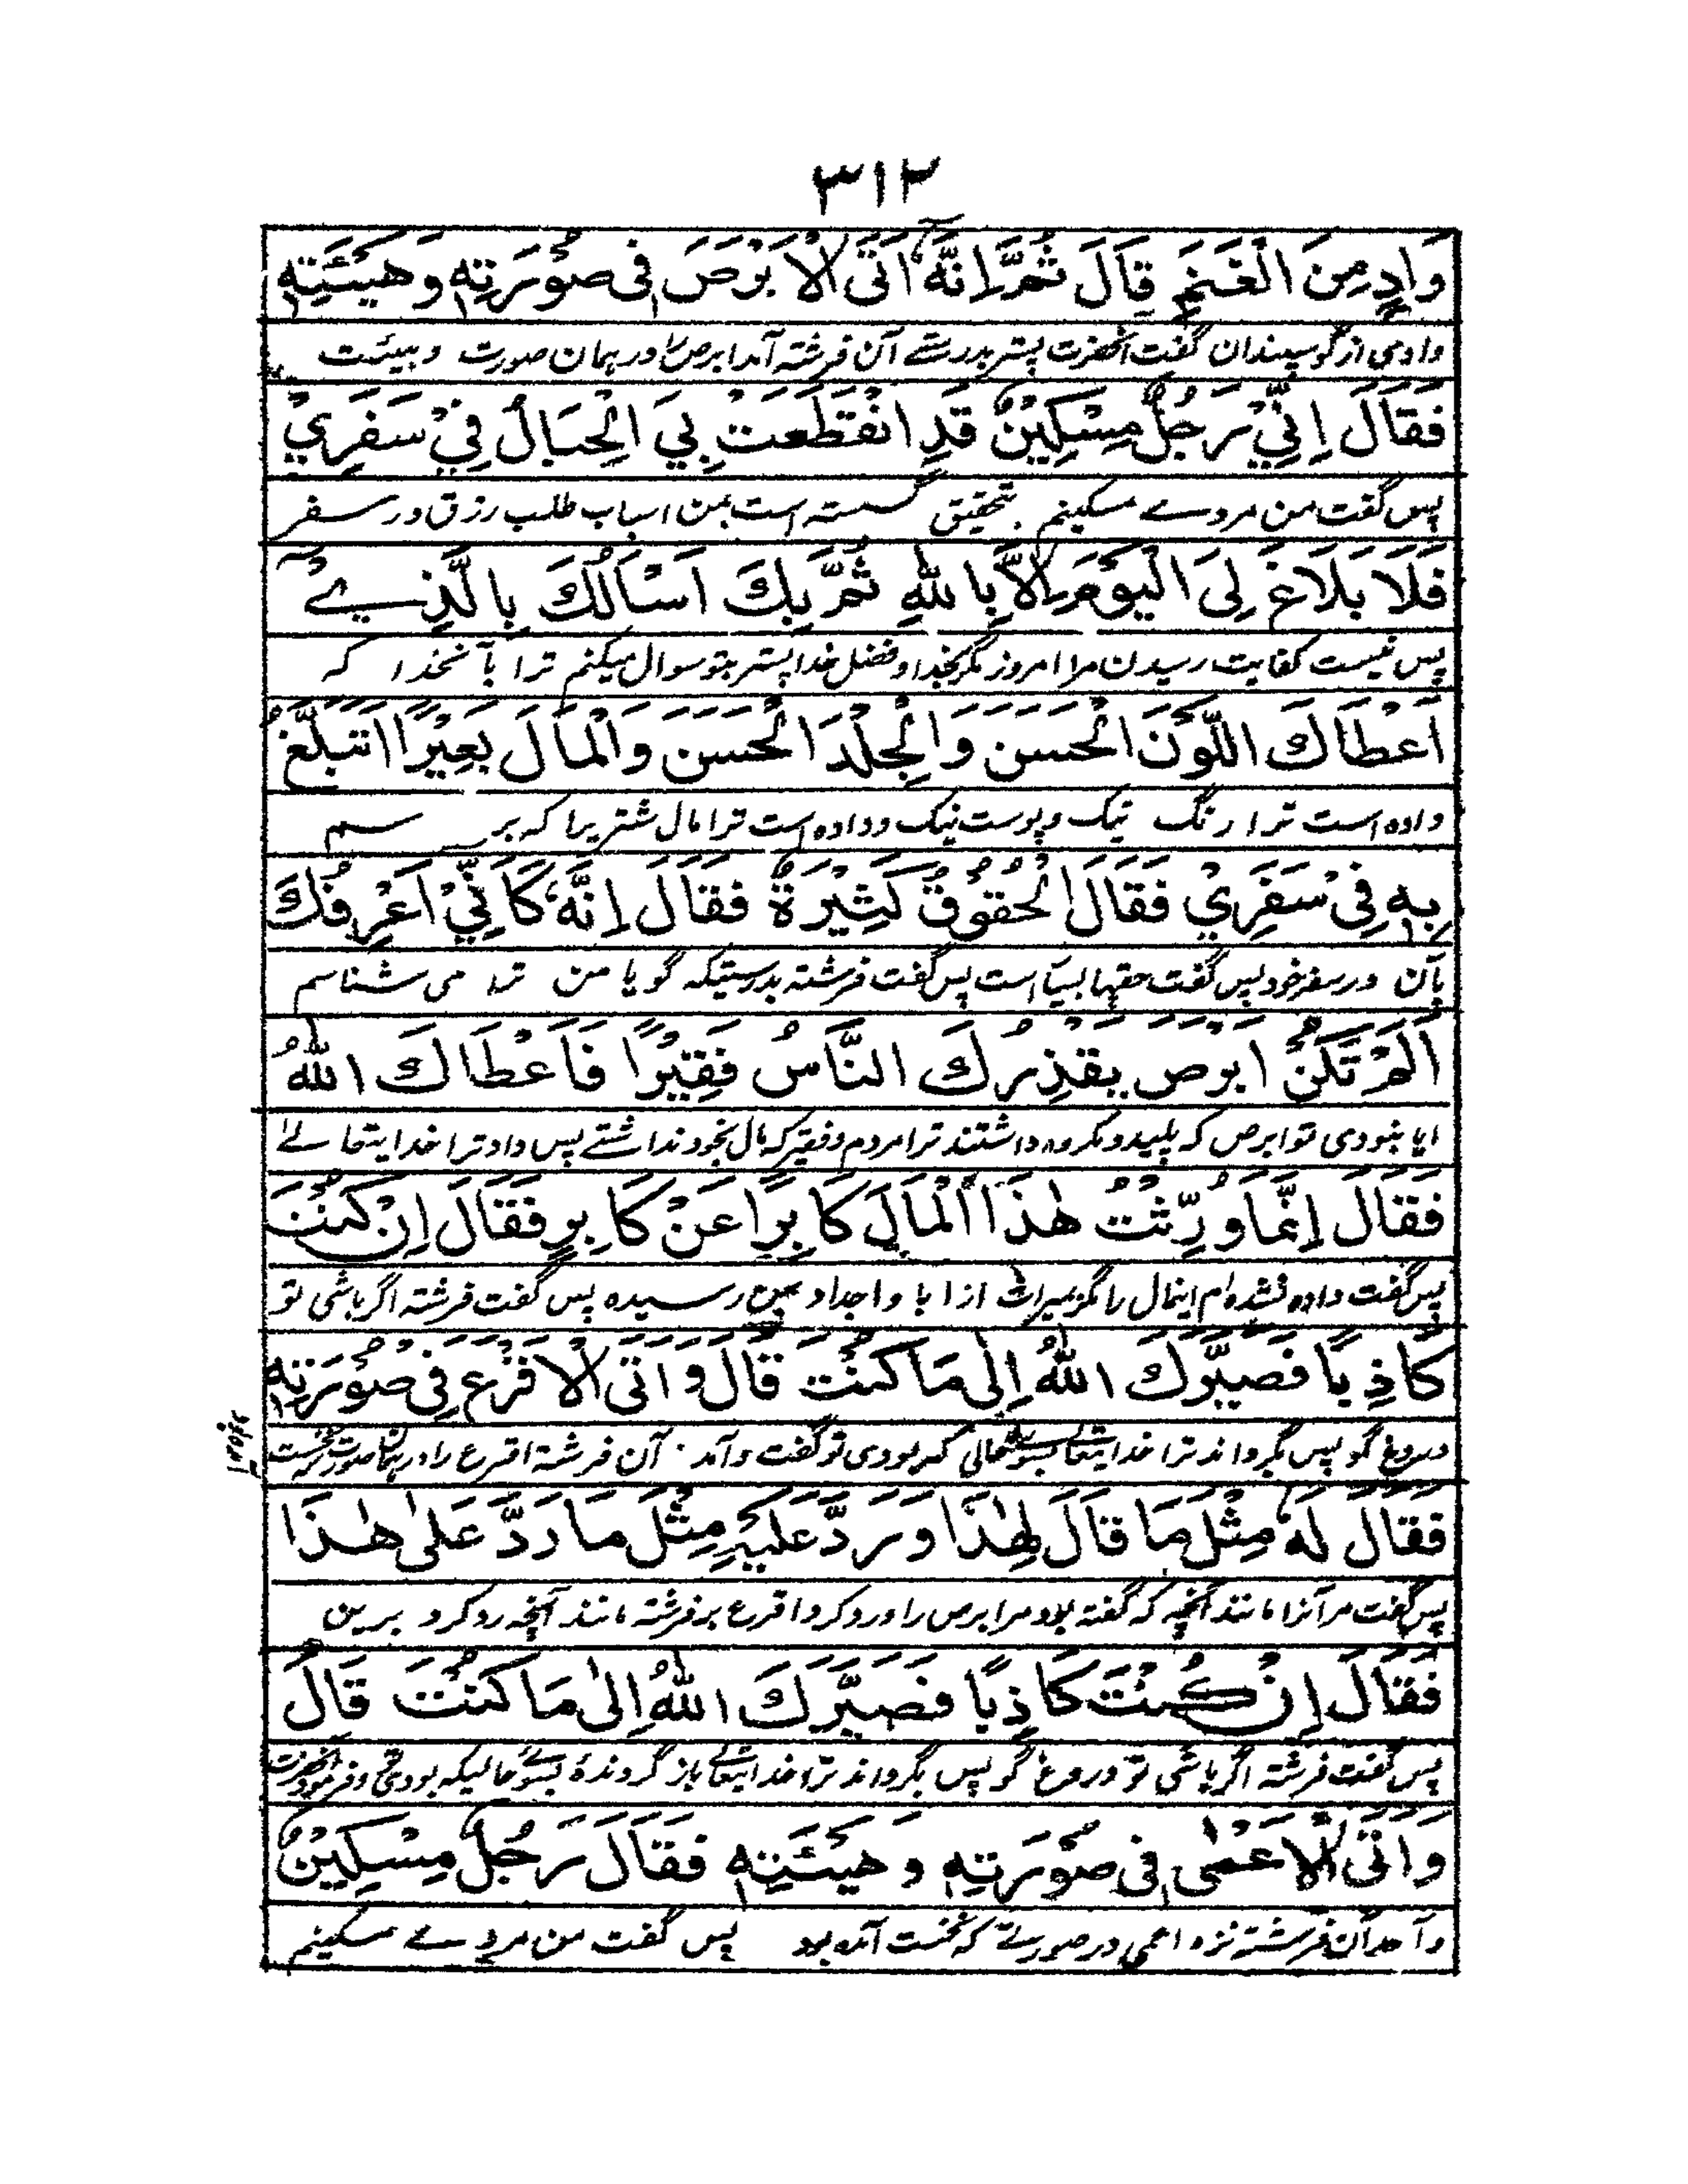 ٣١٢
وَادٍ مِنَ الْغَنَمِ قَالَ ثُمَّ اِنَّهٗ اَتَى الْاَبْرَصَ فِى صُوْرَتِهٖ وَهَيْئَتِهٖ
وادی از گوسپندان گفت آنحضرت پستر بدرستے آن فرشته آمد ابرص را در همان صورت و هیئت
فَقَالَ اِنِّيْ رَجُلٌ مِسْكِيْنٌ قَدِ انْقَطَعَتْ بِيَ الْحِبَالُ فِيْ سَفَرِيْ
پس گفت من مردے مسکینم بتحقیق گسسته است بمن اسباب طلب رزق در سفر
فَلَا بَلَاغَ لِيَ الْيَوْمَ اِلَّا بِاللّٰهِ ثُمَّ بِكَ اَسْاَلُكَ بِالَّذِيْ
پس نیست کفایت رسیدن مرا امروز مگر بخدا و فضل خدا پستر بتو سوال میکنم ترا بآنخدا که
اَعْطَاكَ اللَّوْنَ الْحَسَنَ وَالْجِلْدَ الْحَسَنَ وَالْمَالَ بَعِيْرًا اَتَبَلَّغُ
داده است ترا رنگ نیک و پوست نیک و داده است ترا مال شتریرا که برسم
بِهٖ فِى سَفَرِيْ فَقَالَ الْحُقُوْقُ كَثِيْرَةٌ فَقَالَ اِنَّهٗ كَاَنِّيْ اَعْرِفُكَ
بآن در سفر خود پس گفت حقها بسیار است پس گفت فرشته بدرستیکه گویا من ترا می شناسم
اَلَمْ تَكُنْ اَبْرَصَ يَقْذَرُكَ النَّاسُ فَقِيْرًا فَاَعْطَاكَ اللّٰهُ
ایا نبودی تو ابرص که پلید و مکروه داشتند ترا مردم و فقیر که مال بخود نداشتے پس داد ترا خدایتعالے
فَقَالَ اِنَّمَا وُرِّثْتُ هٰذَا الْمَالَ كَابِرًا عَنْ كَابِرٍ فَقَالَ اِنْ كُنْتَ
پس گفت داده نشده ام اینمال را مگر بمیراث از ابا و اجداد بمن رسیده پس گفت فرشته اگر باشی تو
كَاذِبًا فَصَيَّرَكَ اللّٰهُ اِلٰى مَا كُنْتَ قَالَ وَاَتَى الْاَقْرَعَ فِى صُوْرَتِهٖ
دروغ گو پس بگرداند ترا خدایتعالے بسوے حالی که بودی تو گفت و آمد آن فرشتة اقرع را در همان صورت نخست
فَقَالَ لَهٗ مِثْلَ مَا قَالَ لِهٰذَا وَرَدَّ عَلَيْهِ مِثْلَ مَا رَدَّ عَلٰى هٰذَا
پس گفت مر آنرا مانند آنچه که گفته بود مر ابرص را و رد کرد اقرع بر فرشته مانند آنچه رد کرد برین
فَقَالَ اِنْ كُنْتَ كَاذِبًا فَصَيَّرَكَ اللّٰهُ اِلٰى مَا كُنْتَ قَالَ
پس گفت فرشته اگر باشی تو دروغ گو پس بگرداند ترا خدایتعالے باز گرونده بسوے حالیکه بودی و فرمود آنحضرت
وَاَتَى الْاَعْمٰى فِى صُوْرَتِهٖ وَهَيْئَتِهٖ فَقَالَ رَجُلٌ مِسْكِيْنٌ
و آمد آن فرشته نزد اعمی در صورتے که نخست آمده بود پس گفت من مردے مسکینم